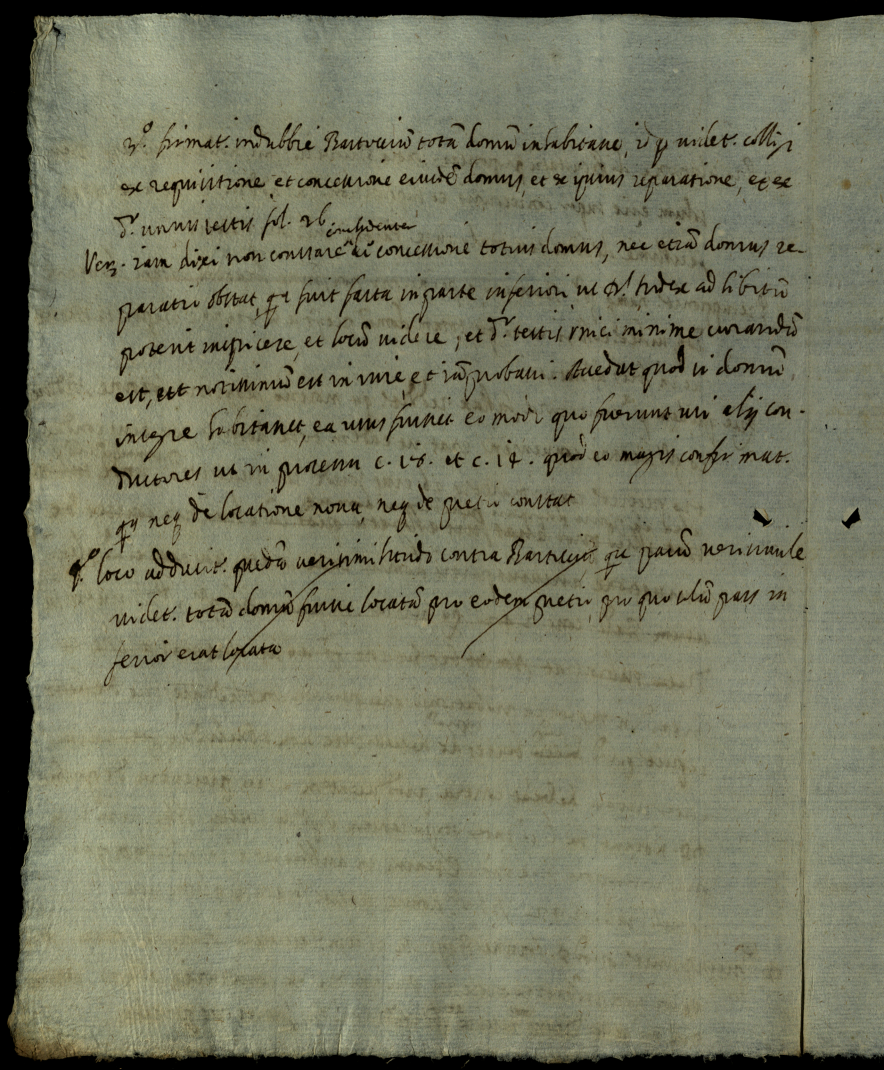 3.º firmat. indubbie Bartuciũ totã domũ inhabitare, id q. videt. colligi
ex requisitione, et concessione eiusdẽ domus, et ex ipsius reparatione, et ex
d.º unius testis fol. 26
Ver3. iam dixi non constare de concessione totius domus, nec etiã domus re-
paratio obstat, quia fuit facta in parte inferiori, ut Iudex ad libitũ
poterit inspicere, et locũ videre, et d.º testis unici minime curandũ
est, ett notissimũ est in iure, et iã probavi. Accedat quod si domũ
integre habitaret, ea usus fuisset eo modo quo fuerunt usi alij con-
ductores ut in processu c. 18. et c. 14. quod eo magis confirmat.
quia neq de locatione nova, neq de pretio constat
4.º loco adducit. quedã verisimilitudo contra Bartuciũ quia parũ verisimile
videt. totã domũ fuisse locatã pro eodem pretio, pro quo solũ pars in
ferior erat locata